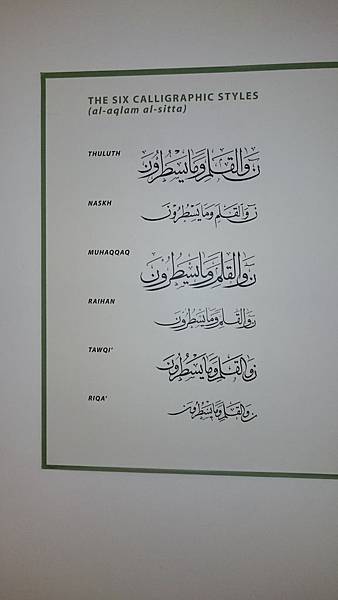 THE SIX CALLIGRAPHIC STYLES
(al-aqlam al-sitta)
THULUTH
نَ وَالْقَلَمِ وَمَا يَسْطُرُونَ
NASKH
نَ وَالْقَلَمِ وَمَا يَسْطُرُونَ
MUHAQQAQ
نَ وَالْقَلَمِ وَمَا يَسْطُرُونَ
RAIHAN
نَ وَالْقَلَمِ وَمَا يَسْطُرُونَ
TAWQI'
نَ وَالْقَلَمِ وَمَا يَسْطُرُونَ
RIQA'
نَ وَالْقَلَمِ وَمَا يَسْطُرُونَ